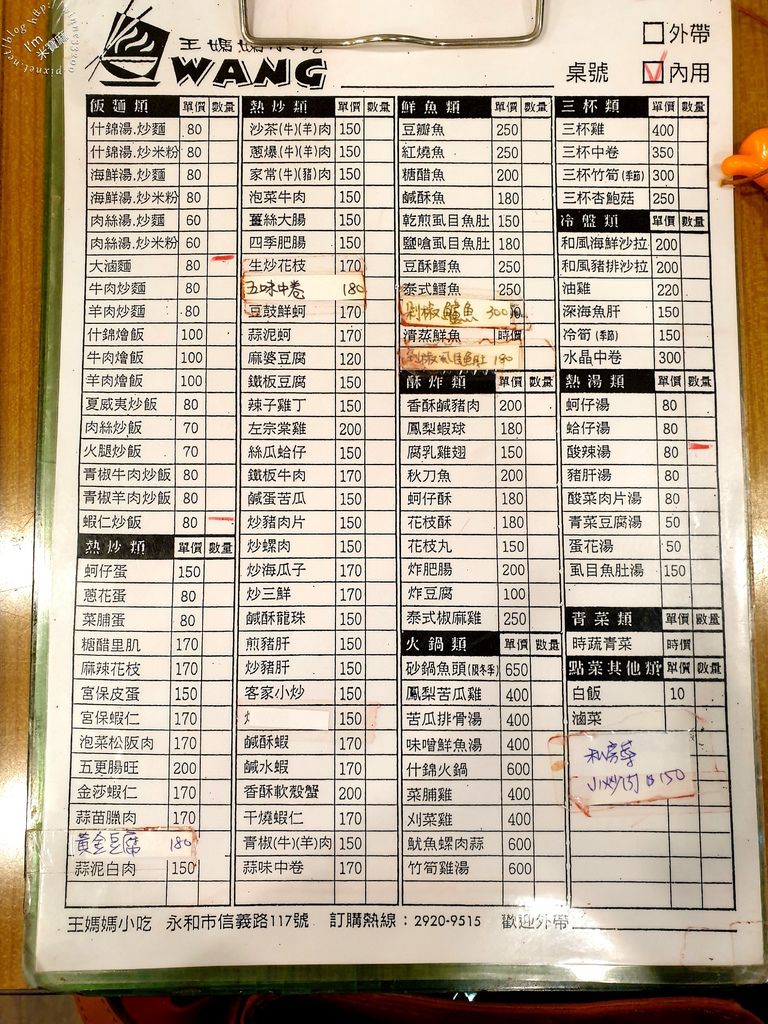 王媽媽小吃
WANG
桌號
外帶
內用
飯麵類 單價 數量
什錦湯.炒麵 80
什錦湯.炒米粉 80
海鮮湯.炒麵 80
海鮮湯.炒米粉 80
肉絲湯.炒麵 60
肉絲湯.炒米粉 60
大滷麵 80
牛肉炒麵 80
羊肉炒麵 80
什錦燴飯 100
牛肉燴飯 100
羊肉燴飯 100
夏威夷炒飯 80
肉絲炒飯 70
火腿炒飯 70
青椒牛肉炒飯 80
青椒羊肉炒飯 80
蝦仁炒飯 80
熱炒類 單價 數量
蚵仔蛋 150
蔥花蛋 80
菜脯蛋 80
糖醋里肌 170
麻辣花枝 170
宮保皮蛋 150
宮保蝦仁 170
泡菜松阪肉 170
五更腸旺 200
金莎蝦仁 170
蒜苗臘肉 170
黃金豆腐 180
蒜泥白肉 150
熱炒類 單價 數量
沙茶(牛)(羊)肉 150
蔥爆(牛)(羊)肉 150
家常(牛)(豬)肉 150
泡菜牛肉 150
薑絲大腸 150
四季肥腸 150
生炒花枝 170
五味中卷 180
豆鼓鮮蚵 170
蒜泥蚵 170
麻婆豆腐 120
鐵板豆腐 150
辣子雞丁 150
左宗棠雞 200
絲瓜蛤仔 150
鐵板牛肉 170
鹹蛋苦瓜 150
炒豬肉片 150
炒螺肉 150
炒海瓜子 170
炒三鮮 170
鹹酥龍珠 150
煎豬肝 150
炒豬肝 150
客家小炒 150
150
鹹酥蝦 170
鹹水蝦 170
香酥軟殼蟹 200
干燒蝦仁 170
青椒(牛)(羊)肉 150
蒜味中卷 170
鮮魚類 單價 數量
豆瓣魚 250
紅燒魚 250
糖醋魚 200
鹹酥魚 180
乾煎虱目魚肚 150
鹽嗆虱目魚肚 180
豆酥鱈魚 250
泰式鱈魚 250
剁椒鱸魚 300
清蒸鮮魚 時價
剁椒虱目魚肚 190
酥炸類 單價 數量
香酥鹹豬肉 200
鳳梨蝦球 180
腐乳雞翅 150
秋刀魚 200
蚵仔酥 180
花枝酥 180
花枝丸 150
炸肥腸 200
炸豆腐 100
泰式椒麻雞 250
火鍋類 單價 數量
砂鍋魚頭(限冬季) 650
鳳梨苦瓜雞 400
苦瓜排骨湯 400
味噌鮮魚湯 400
什錦火鍋 600
菜脯雞 400
刈菜雞 400
魷魚螺肉蒜 600
竹筍雞湯 600
三杯類 單價 數量
三杯雞 400
三杯中卷 350
三杯竹筍(季節) 300
三杯杏鮑菇 250
冷盤類 單價 數量
和風海鮮沙拉 200
和風豬排沙拉 200
油雞 220
深海魚肝 150
冷筍(季節) 150
水晶中卷 300
熱湯類 單價 數量
蚵仔湯 80
蛤仔湯 80
酸辣湯 80
豬肝湯 80
酸菜肉片湯 80
青菜豆腐湯 50
蛋花湯 50
虱目魚肚湯 150
青菜類 單價 數量
時蔬青菜 時價
點菜其他類 單價 數量
白飯 10
滷菜
私房菜
150
王媽媽小吃 永和市信義路117號 訂購熱線:2920-9515 歡迎外帶